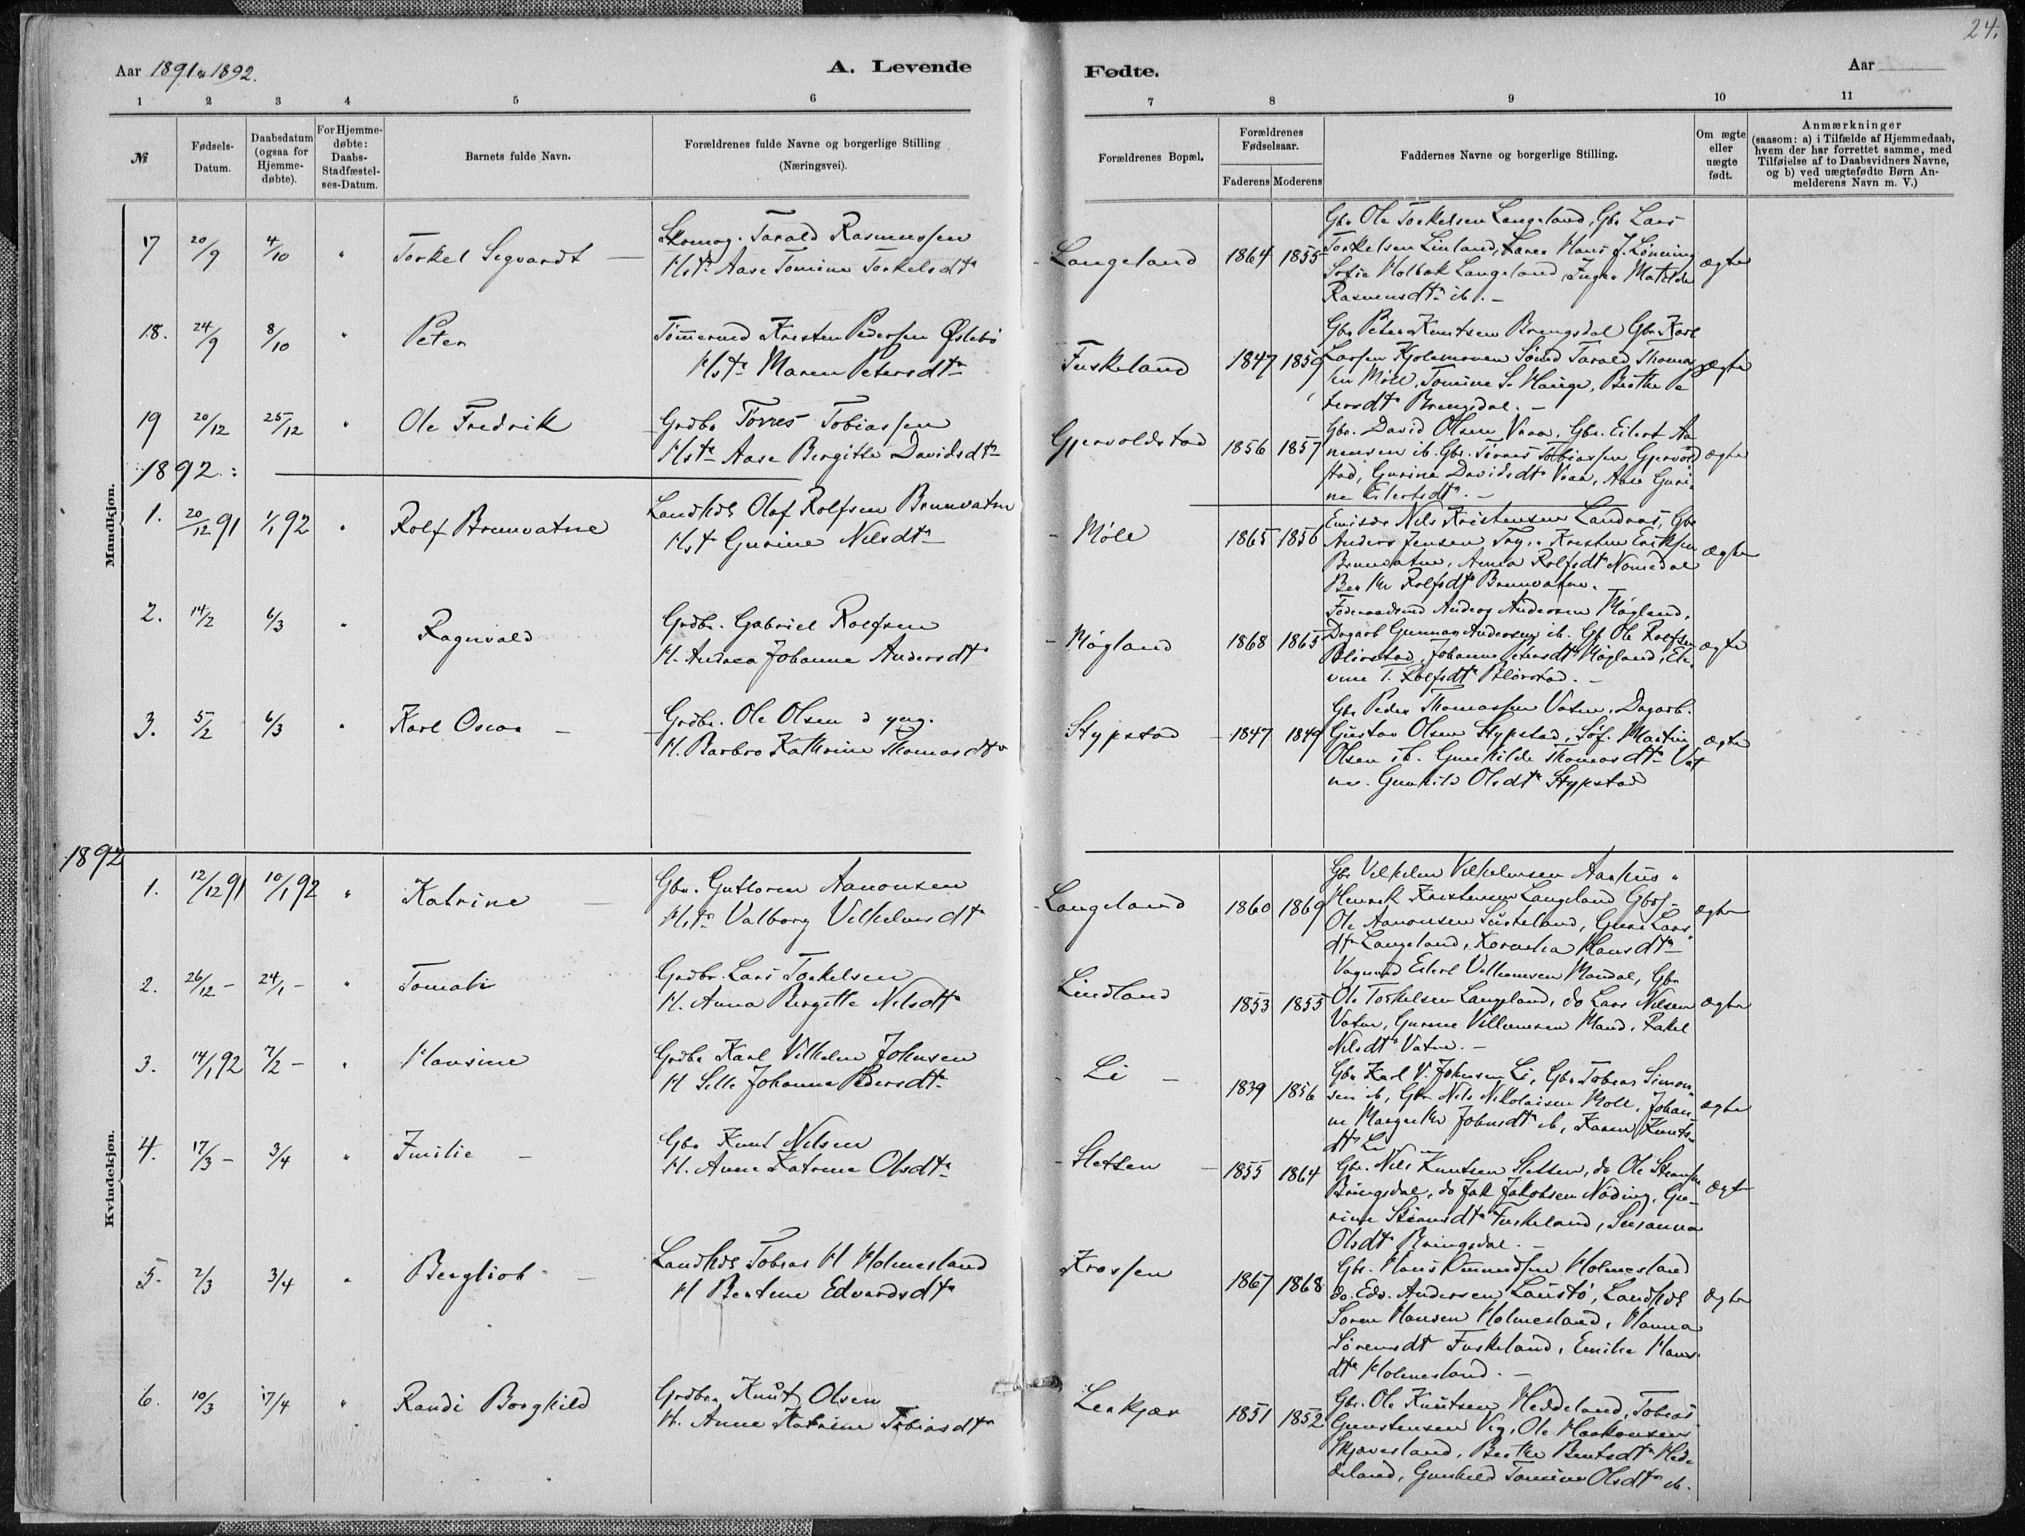 24.
Aar 1891 & 1892.
A. Levende
Fødte.
Aar
1 2 3 4 5 6 7 8 9 10 11
№
Fødsels-Datum.
Daabsdatum (ogsaa for Hjemmedøbte).
For Hjemmedøbte: Daabs-Stadfæstelses-Datum.
Barnets fulde Navn.
Forældrenes fulde Navne og borgerlige Stilling
(Næringsvei).
Forældrenes Bopæl.
Forældrenes Fødselsaar.
Faderens Moderens
Faddernes Navne og borgerlige Stilling.
Om ægte eller uægte født.
Anmærkninger
(saasom: a) i Tilfælde af Hjemmedaab,
hvem der har forrettet samme, med
Tilføielse af to Daabsvidners Navne,
og b) ved uægtefødte Børn Anmelderens Navn m. V.)
Mandkjøn.
17 20/9 4/10 " Torkel Sigvardt
Skomag. Tarald Rasmussen
Hstr Aase Tomine Torkelsdtr
Langeland 1864 1855
Gbr Ole Torkelsen Langeland, Gbr Lars
Torkelsen Linland, Hans J. Lönning
Sofie Holbak Langeland, Inger Matilde
Rasmusdtr ib.
ægte
18. 24/9 8/10 " Peter
Tömermd Kristen Pedersen Øslebö
Hstr Maren Petersdtr
Fuskeland 1847 1859
Gbr Peter Knutsen Bringsdal Gbr Karl
Larsen Kjolemoen Sömd Tarald Thomas
sen Möll, Tomine S. Hauge, Berthe Pe
tersdtr Bringsdal.
ægte
19 20/12 25/12 " Ole Fredrik
Grdbr Torres Tobiassen
Hstr Aase Bergitte Davidsdtr
Gjervoldstad 1856 1857
Gbr. David Olsen Vraa, Gbr. Eilert Aa
nensen ib. Gbr. Tönnes Tobiassen Gjervold
stad, Gurine Davidsdtr Vraa, Aase Guri
ne Eilertsdtr.
ægte
1892:
1. 20/12 91 1/1 92 " Rolf Brunvatne
Landhdl Olaf Rolfsen Brunvatne
Hstr Gurine Nilsdtr
Möll 1865 1856
Emisær Nils Kristensen Landaas, Gbr
Anders Jensen Try, Kristen Eriksen
Brunvatne, Anna Rolfsdtr Nomedal
Berthe Rolfsdtr Brunvatne.
ægte
2. 14/2 6/3 " Ragnvald
Grdbr. Gabriel Rolfsen
H. Andrea Johanne Andersdtr
Mögland 1868 1865
Föderaadsmd Anders Andersen Mögland,
Dagarb Gunnar Andersen ib. Gb Ole Rolfsen
Blörstad, Johanne Petersdtr Mögland, Ele
vine T. Rolfsdtr Blörstad.
ægte
3. 5/2 6/3 " Karl Oscar
Grdbr. Ole Olsen d yng.
H. Barbro Kathrine Thomasdtr
Stypstad 1847 1849
Gbr Peder Thomassen Vatne, Dagarb.
Gustav Olsen Stypstad, Söf. Martin
Olsen ib. Gunhilde Thomasdtr Vat
ne. Gunhild Olsdtr Stypstad
ægte
Kvindekjøn.
1892
1. 12/12 91 10/1 92 " Katrine
Gbr. Guttorm Aanonsen
Hstr Valborg Vilhelmsdtr
Langeland 1860 1869
Gbr Vilhelm Vilhelmsen Aarhus
Henrik Kristensen Langeland Gbr
Ole Aanonsen Suskeland, Gurine Lars
dtr Langeland, Kornelia Hansdtr
ægte
2. 26/12 - 24/1 - " Tomali
Grdbr. Lars Torkelsen
H. Anna Bergitte Nilsdtr
Lindland 1853 1855
Vognmd Eilert Villumsen Mandal, Gbr
Ole Torkelsen Langeland, do Lars Nilsen
Vatne, Gurine Villumsen Mand. Rakel
Nilsdtr Vatne.
ægte
3. 14/1 92 7/2 - " Hansine
Grdbr Karl Vilhelm Johnsen
H Sille Johanne Persdtr
Li 1839 1856
Gbr Karl V. Johnsen Li, Gbr Tobias Simon
sen ib, Gbr Nils Nikolaisen Möll, Johan
ne Margrethe Johnsdtr ib, Karen Knuts
dtr Li
ægte
4. 17/3 - 3/4 " Emilie
Gbr Knut Nilsen
H. Anne Katrine Olsdtr
Sletten 1855 1864
Gbr. Nils Knutsen Sletten, do Ole Stiansen
Bringsdal, do Jak Jakobsen Nöding, Gu
rine Stiansdtr Fuskeland, Susanna
Olsdtr Bringsdal.
ægte
5. 2/3 3/4 " Bergliot
Landhdl Tobias H Holmesland
H Bertine Edvardsdtr
Krossen 1867 1868
Gbr. Hans Omundsen Holmesland
do. Edv. Andersen Laustö, Landhdl
Soren Hansen Holmesland, Hanna
Sörensdtr Fuskeland, Emilie Hans
dtr Holmesland.
ægte
6. 10/3 17/4 " Randi Borghild
Grdbr Knut Olsen
H. Anne Katrine Tobiasdtr
Lerkjær 1851 1852
Gbr. Ole Knutsen Heddeland, Tobias
Gunstensen Vig, Ole Haakonsen
Skjævesland, Berthe Berntsdtr Hed
deland, Gunhild Tomine Olsdtr ib.